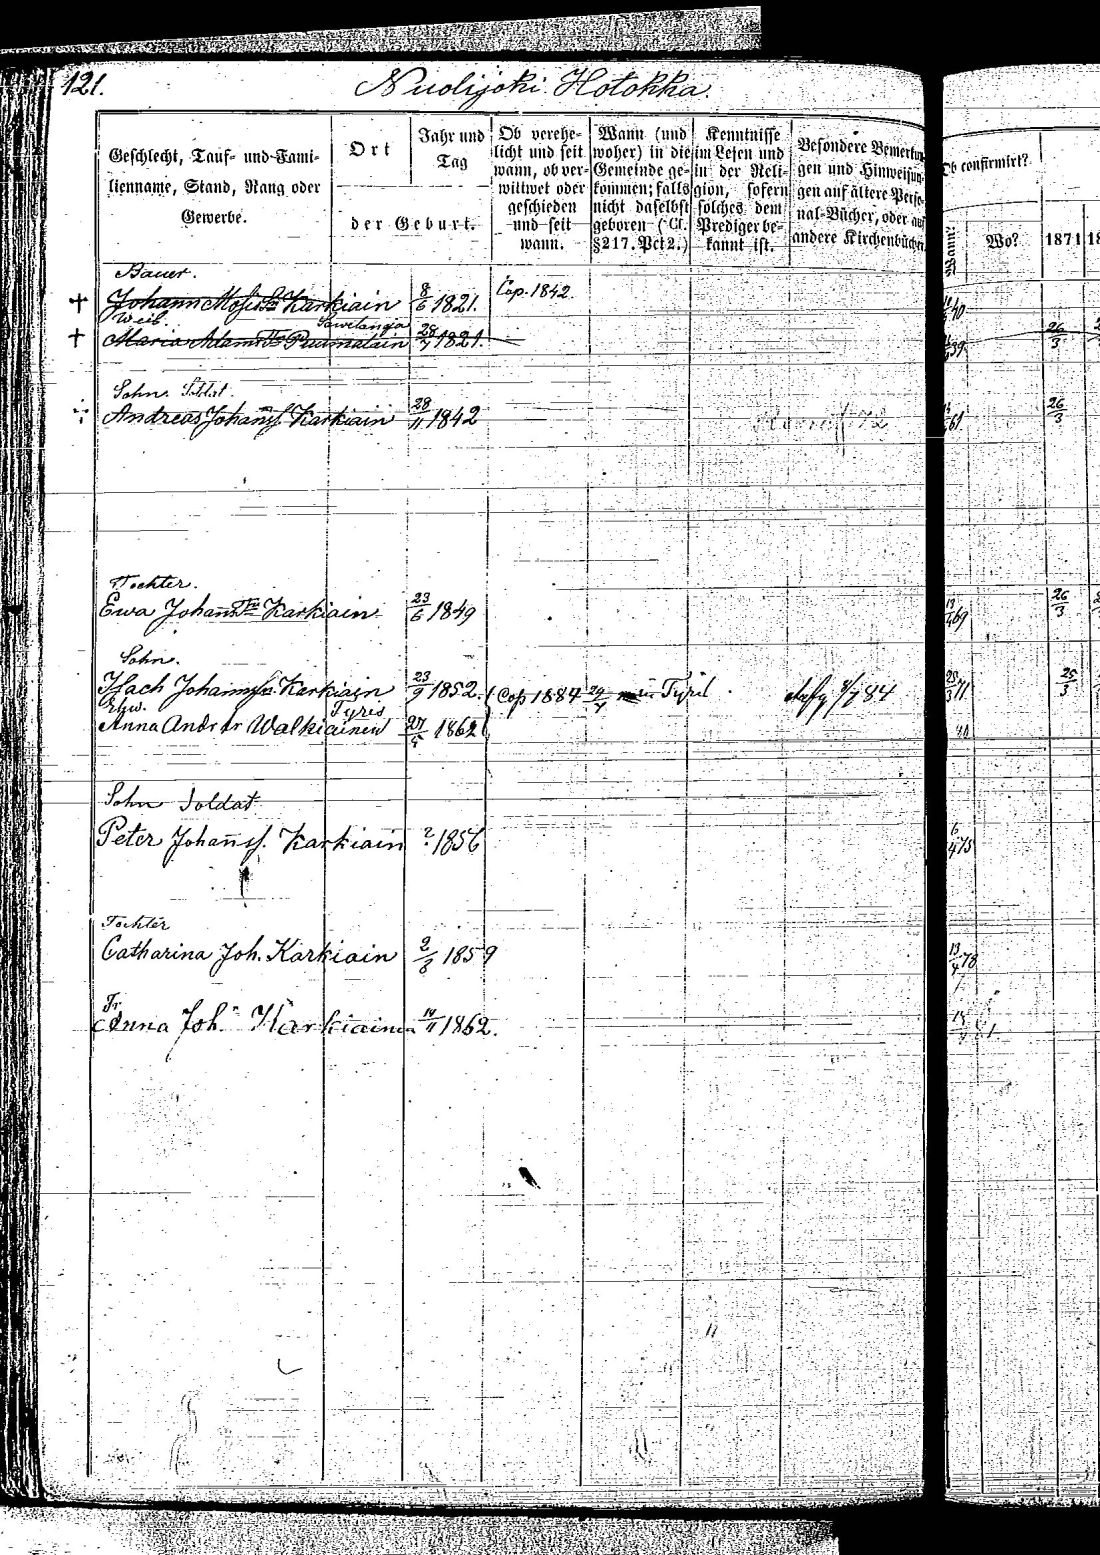 121.
Nuolijoki Hotokka.
Geschlecht, Tauf- und Fami-
lienname, Stand, Rang oder
Gewerbe.
Ort
der Geburt.
Jahr und
Tag
Ob verehe-
licht und seit
wann, ob ver-
wittwet oder
geschieden
und seit
wann.
Wann (und
woher) in die
Gemeinde ge-
kommen; falls
nicht daselbst
geboren (Cl.
§217. Pct 2.)
Kenntnisse
im Lesen und
in der Reli-
gion, sofern
solches dem
Prediger be-
kannt ist.
Besondere Bemerkun
gen und Hinweisun
gen auf ältere Perso
nal-Bücher, oder auf
andere Kirchenbücher
Ob confirmirt?
Wann?
Wo?
1871
Bauer.
† Johann Karkiain 8/6 1821. Cop. 1842. 40
Weib.
† Maria Adams Tr 28/7 1821. 39 26/3
Sohn. Soldat.
Andreas Johanns. Karkiain 28/11 1842 61 26/3
Tochter.
Ewa Johanns Tr Karkiain 23/6 1849 69 26/3
Sohn.
Isach Johanns Sn Karkiain 23/9 1852. Cop 1884 in 84 25/3 71 25/3
Ehw. Tyris
Anna Andr tr Walkiainen 27/5 1862
Sohn Soldat
Peter Johanns. Karkiain ? 1856 75
Tochter
Catharina Joh. Karkiain 2/8 1859 13/4 78
Tr
Anna Joh. Karkiainen 14/11 1862.